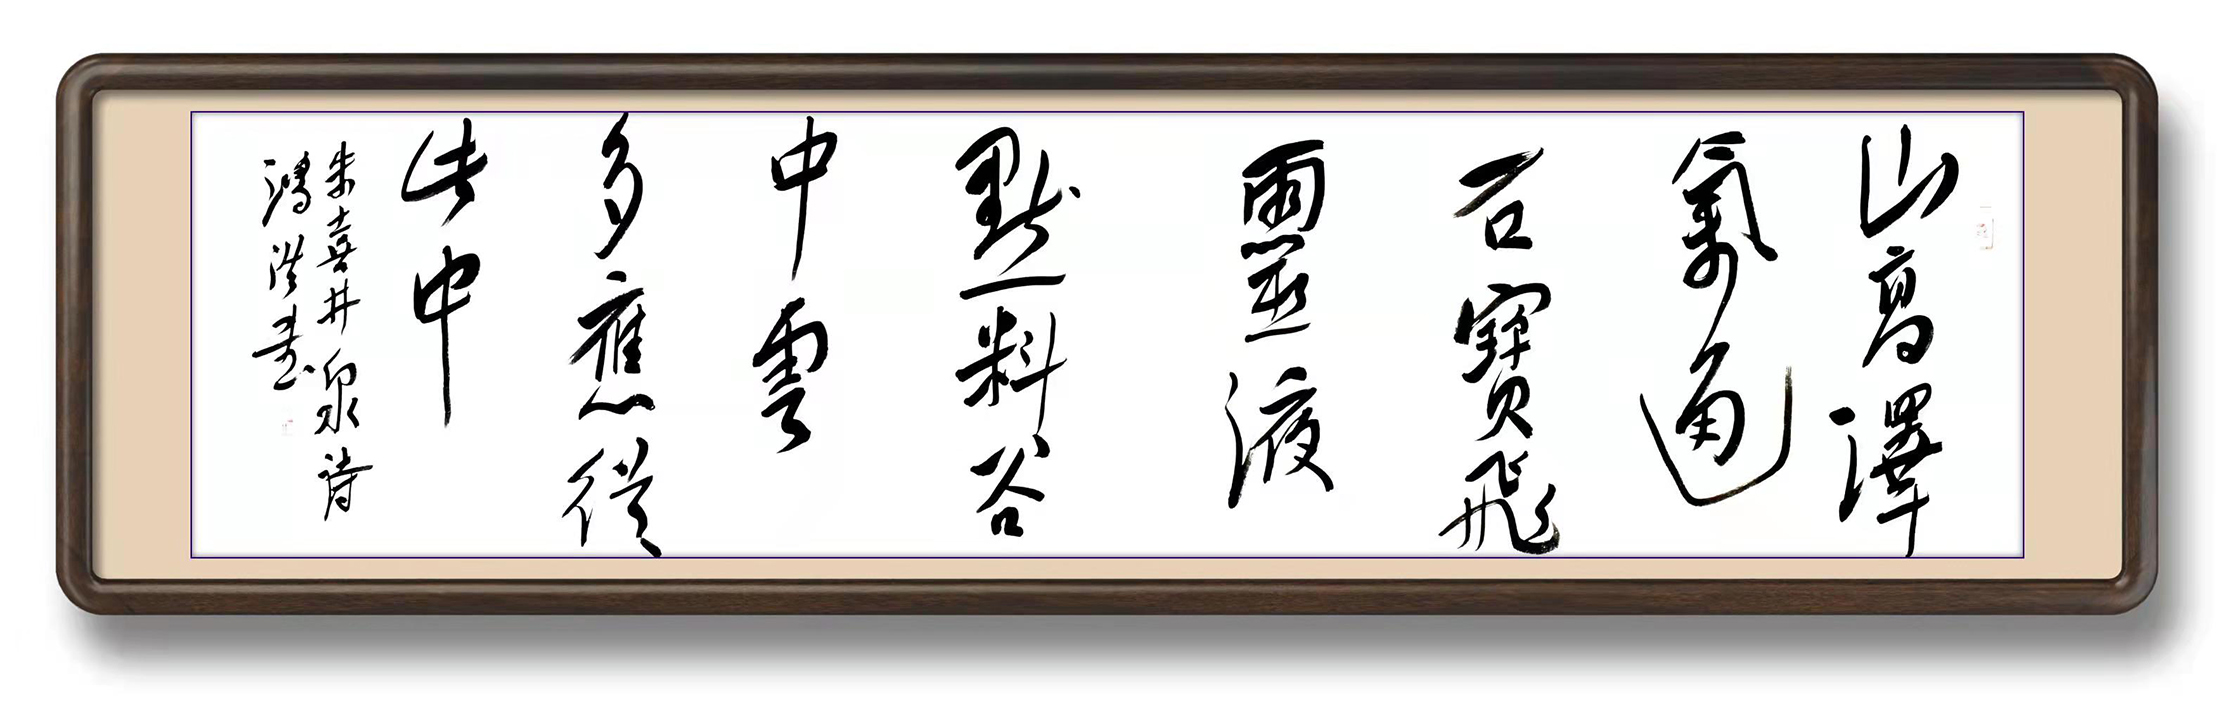 山高澤
氣通
石寶飛
靈液
默料谷
中雲
多應從
此中
朱熹井泉詩
鴻浩書